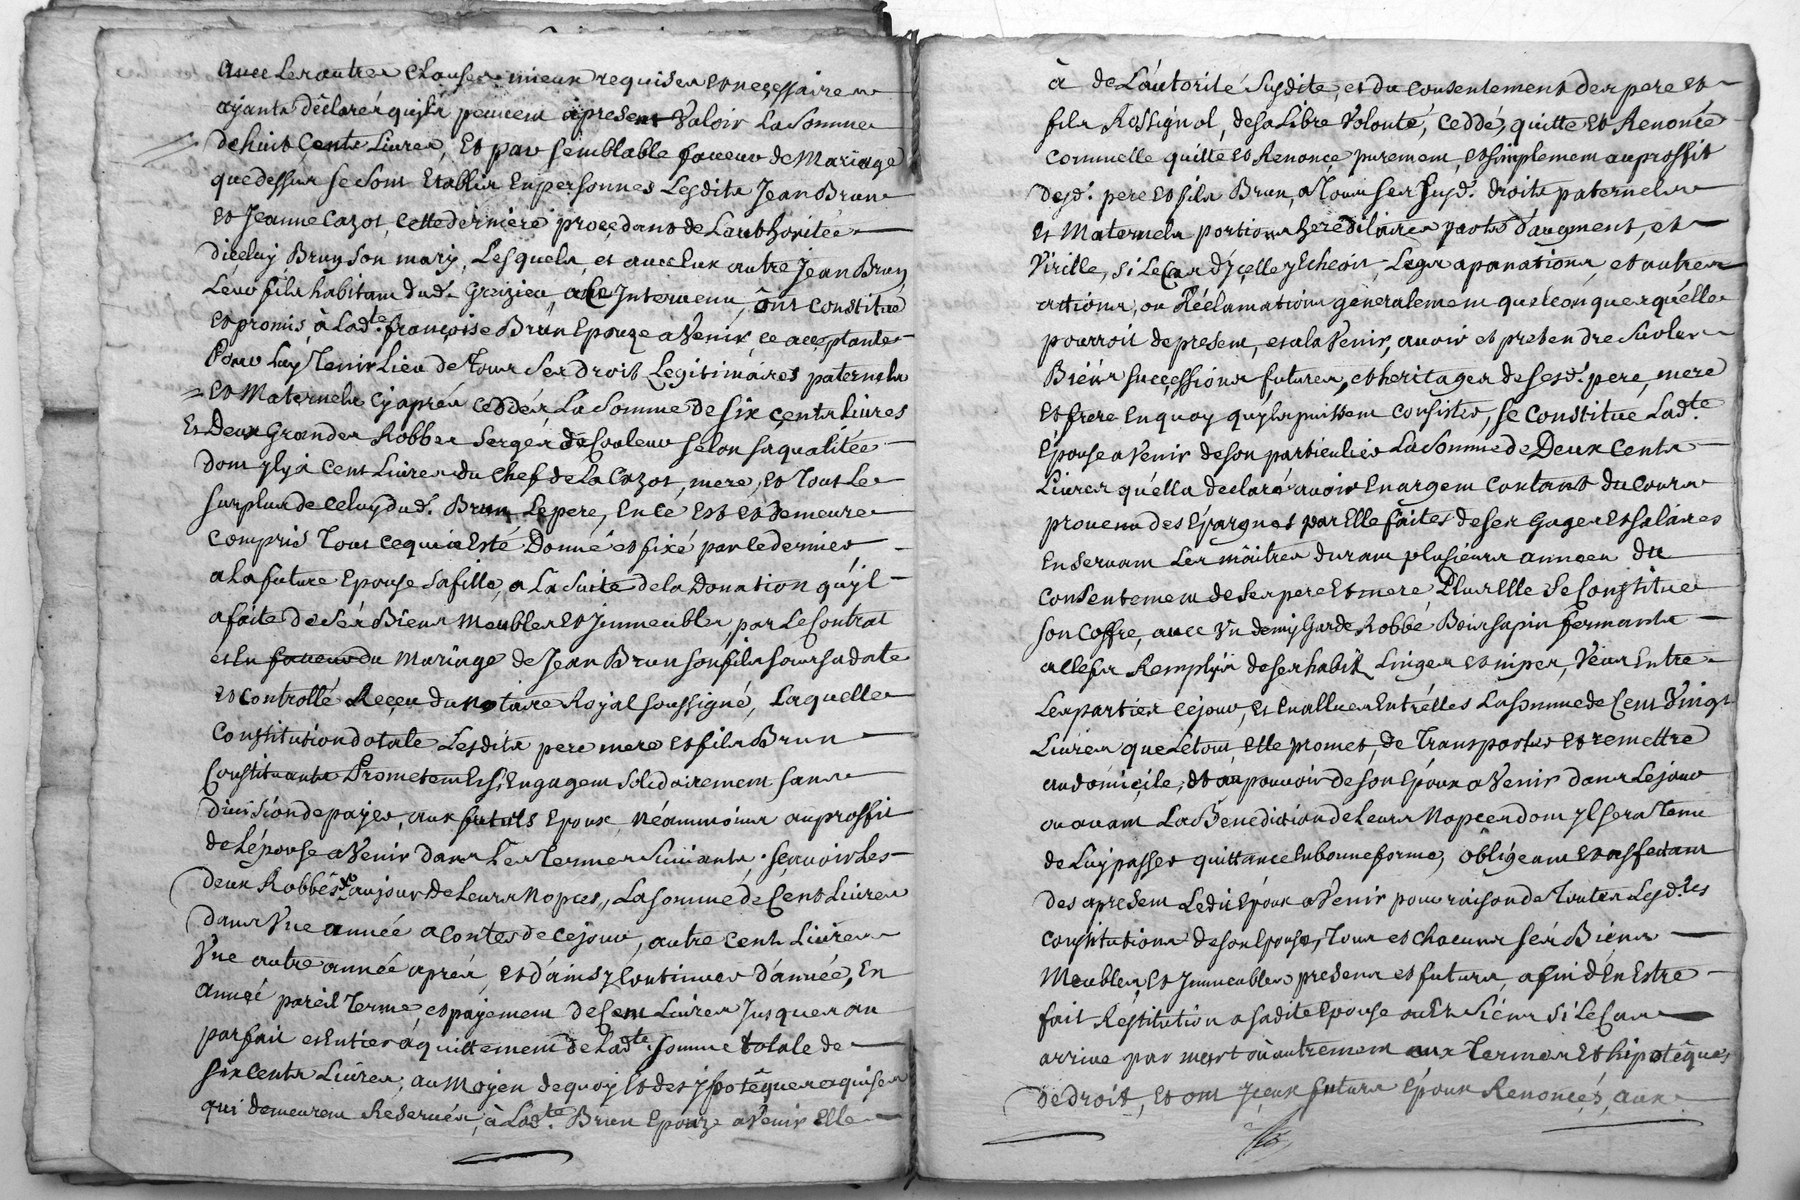 avec les autres clauses mieux requises et necessaires
ayants déclarés quils peuvent apresent valoir la somme
de huit cents Livres, Et par semblable faveur de Mariage
que dessus se sont Etablis En personnes Lesdits Jean Brun
et Jeanne Cazot, cette derniere procedant de Lauthoritée
diceluy Brun son mary, Lesquels, et avec Eux autre Jean Brun
Leur fils habitant dud.
Intervenu, ônt constitué
et promis, à Lad.te françoise Brun Epouze a Venir, ce acceptante
Pour Luy Tenir Lieu de Tous Ses droit Legitimaires paternels
Et Maternels cy aprés ceddés La Somme de six cents Livres
Et Deux Grandes Robbes Serges de Couleur selon sa qualitée
dont yly à cent Livres du chef de La Cazot, mere, et Tout Le
surplus de celuy dud. Brun Le pere, En ce Est et demeure
compris Tout ce qui a Esté Donné et fixé par le dernier
a La future Epouse sa fille, a La Suite de la Donation qu'yl
a faite de Sés Biens Meubles et Jmmeubles, par Le Contrat
et En faveur du Mariage de Jean Brun son fils sous sa date
et controllé Reçeu du notaire Royal soussigné, Laquelle
Constitution dotale Lesdits pere mere et fils Brun
Constituants Promettent Et s'Engagent solidairement sans
division de payer, aux futurs Epoux, néammoins au proffit
de Lépouse a Venir dans Les Termes Suivants. Sçavoir Les
deux Robbes au jour de Leurs Nopces, La somme de Cent Livres
dans Vne année a Conter de ce jour, autre Cent Livres
Vne autre année aprés, et d'ainsy Continuer d'année, En
année pareil Terme et payement de Cent Livres Jusques au
parfait et Entier aquittement de Lad.te somme totale de
Six Cents Livres, au Moyen de quoy Et des ypotêques aquises
qui demeurent Reservées, à Lad.te Brun Epouze a Venir Elle
à de L'autorité Susdite, et du consentement des pere et
fils Rossignol, de sa Libre Volonté, Ceddé, quitte et Renoncé
comme elle quitte et Renonçe purement, et simplement au proffit
desd. pere et fils Brun, a Tous ses susd. droits paternels
et Maternels portions heréditaires parts d'augment, et
Virille, si Le Cas d'yçelle y Echeoit, Legs apanations, et autres
actions, ou Réclamations generalement quelconques qu'elle
pourroit de present, et a la Venir, avoir et pretendre Su les
Biens successions futures, et heritages de sesd. pere, mere
et frere En quoy quyls puissent consister, se constitue Lad.te
épouse a Venir de son particulier La Somme de Deux Cents
Livres qu'ella declaré avoir En argent Contant du Cours
provenu des Epargnes par Elle faites de ses Gages Et salaires
En servant Les maîtres durant plusieurs années du
consentement de Ses pere Et mere, Plus Elle se Constitue
son Coffre, avec Vn demy Garde Robbé Bois sapin fermants
a clefs Remplyi de ses habit, Linges et nipes, Veus Entre
Les parties ce jour, et Evallues Entrélles La somme de Cent Vingt
Livres que Le tout Elle promet, de Transporter et remettre
au domicile, et au pouvoir de son Epoux a Venir dans Le jour
ou avant La Bénédiction de Leurs Nopces dont yl sera Tenu
de Luy passer quittance En bonne forme, obligeant et affectant
des apresent Ledit Epoux a Venir pour raison de Toutes Lesd.tes
constitutions de son Epouse, Tous et chacuns sés Biens
Meubles, Et Jmmeubles presens et futurs, afin d'En Estre
fait Restitution a sadite Epouse ou Es Siéns si Le Cas
arrive par mort ou autrement aux Termes Et hipotêques
de droit, et ont yçeux futurs Epoux Renoncés, aux